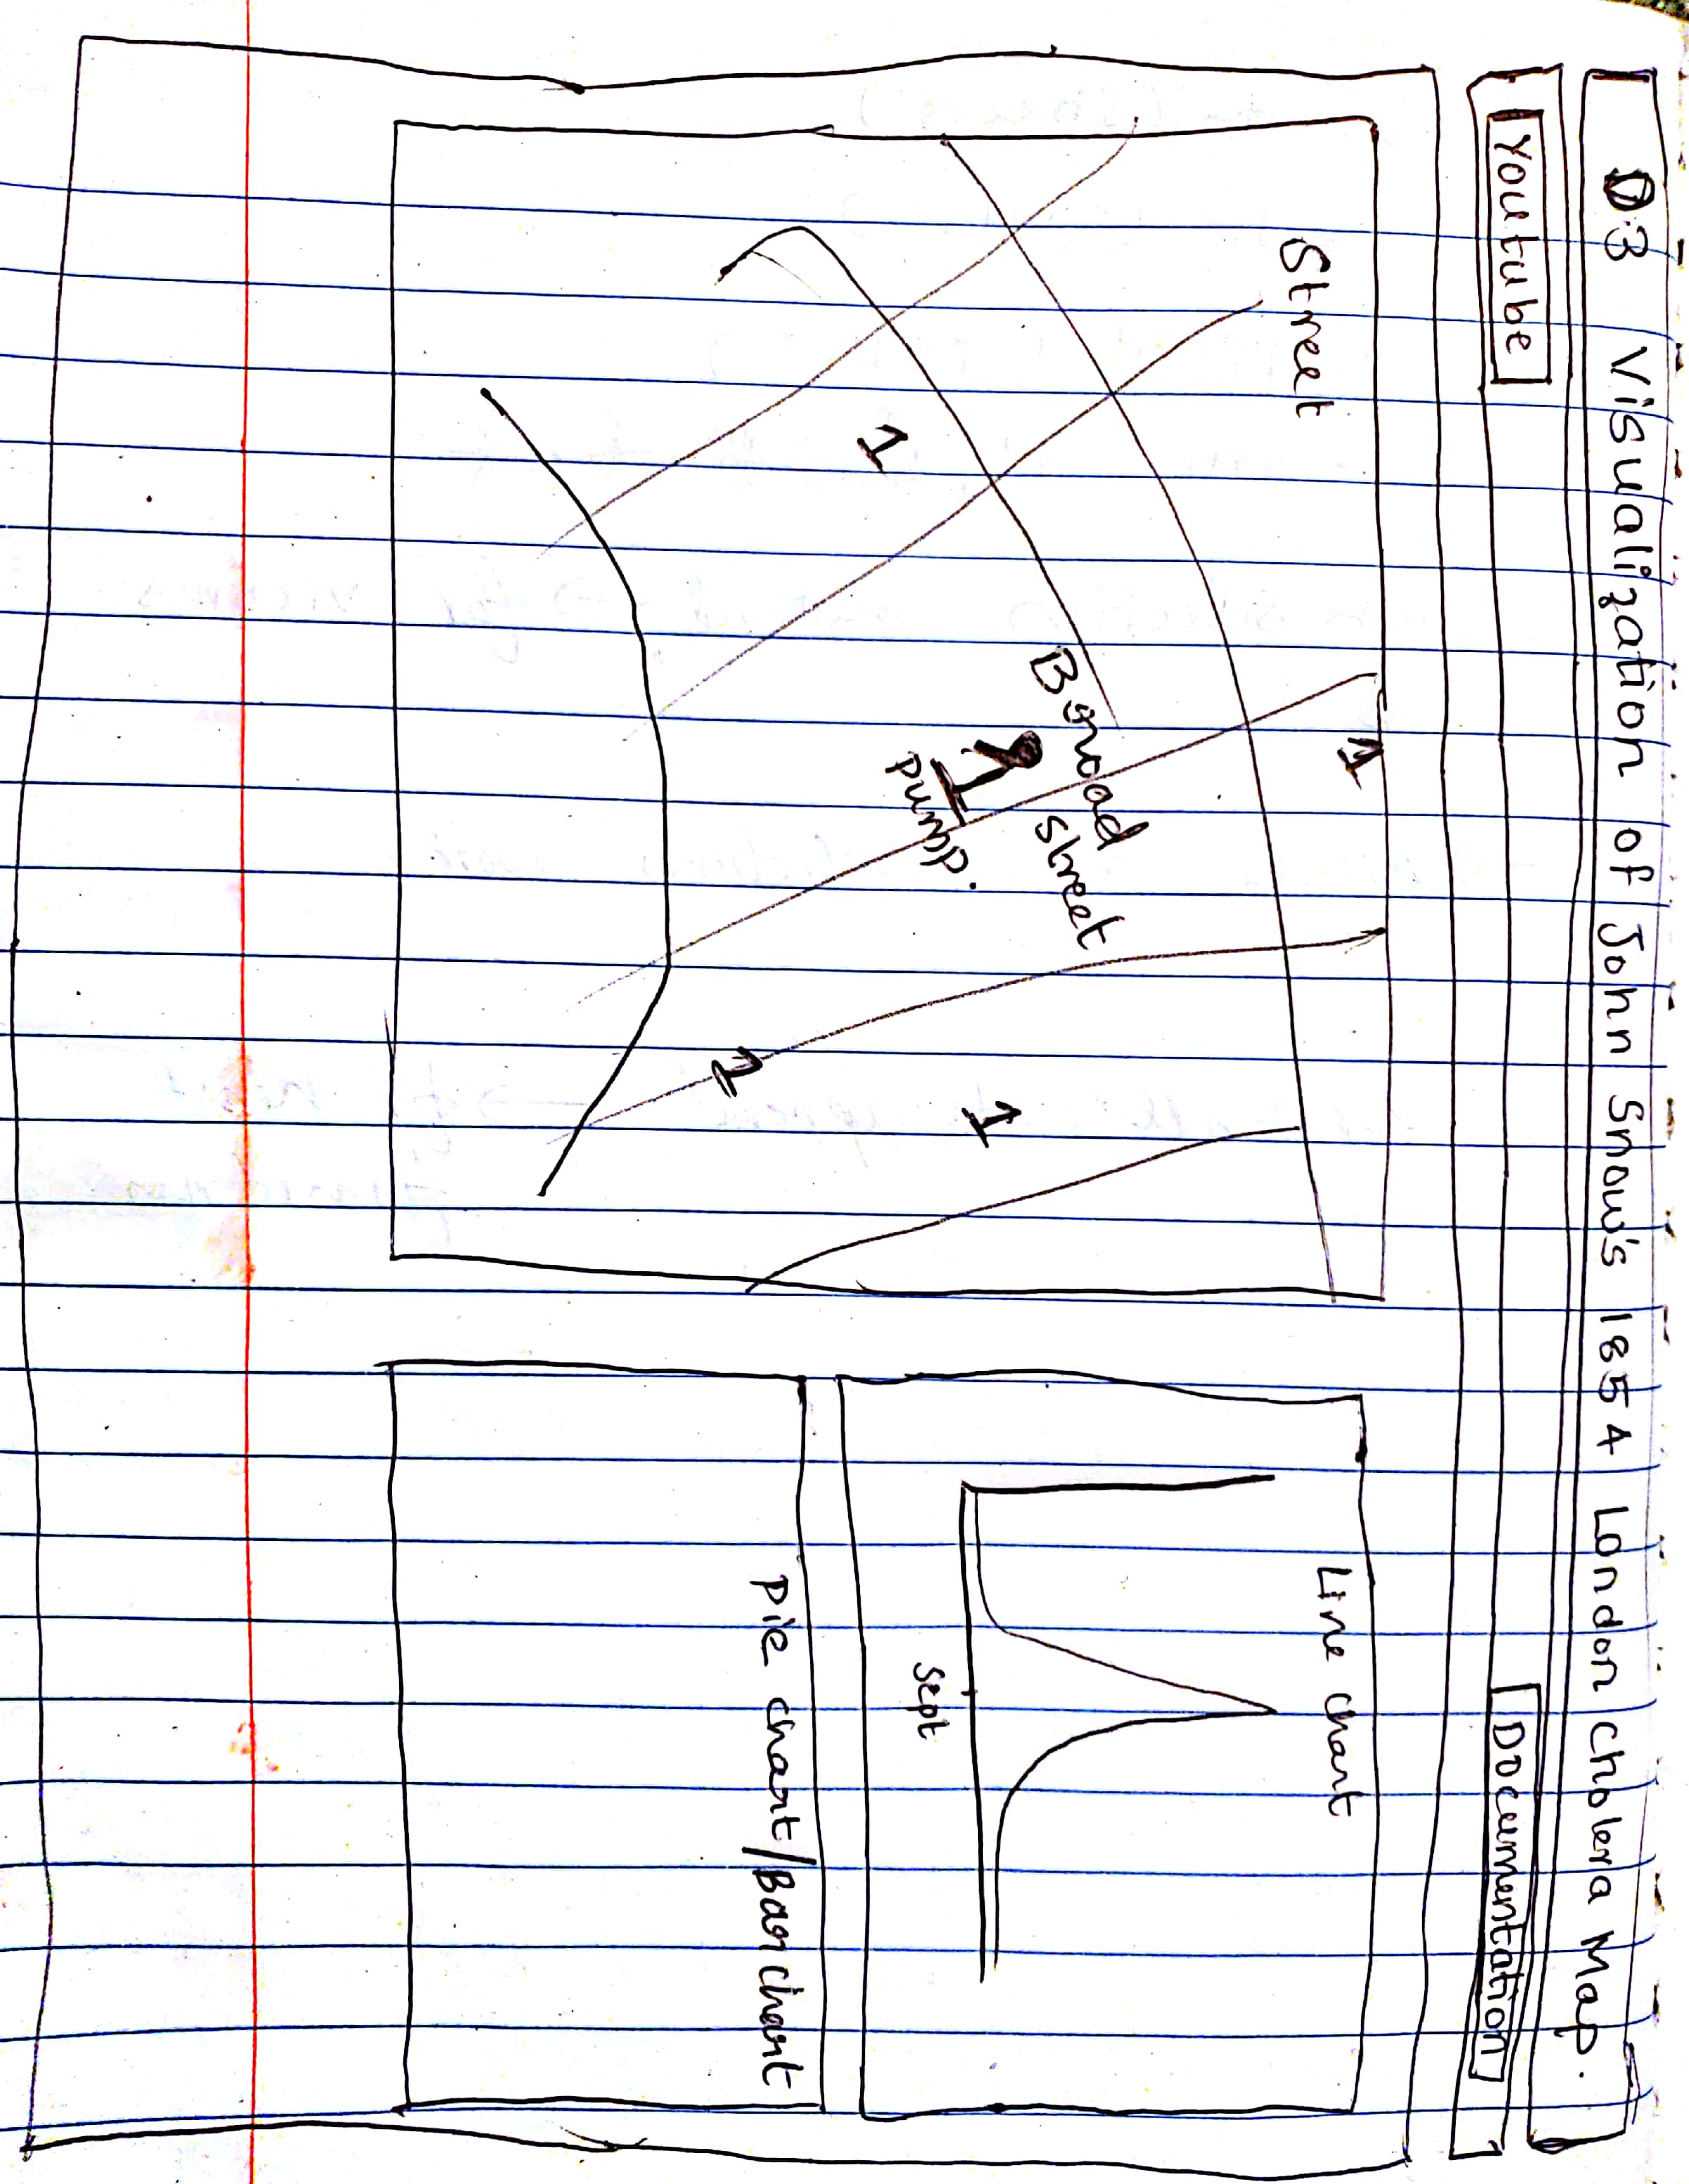 D3 Visualization of John Snow's 1854 London Cholera Map.
Youtube
Documentation
Street
1
1
Broad street
pump.
1
2
Line chart
Sept
pie chart/Bar chart